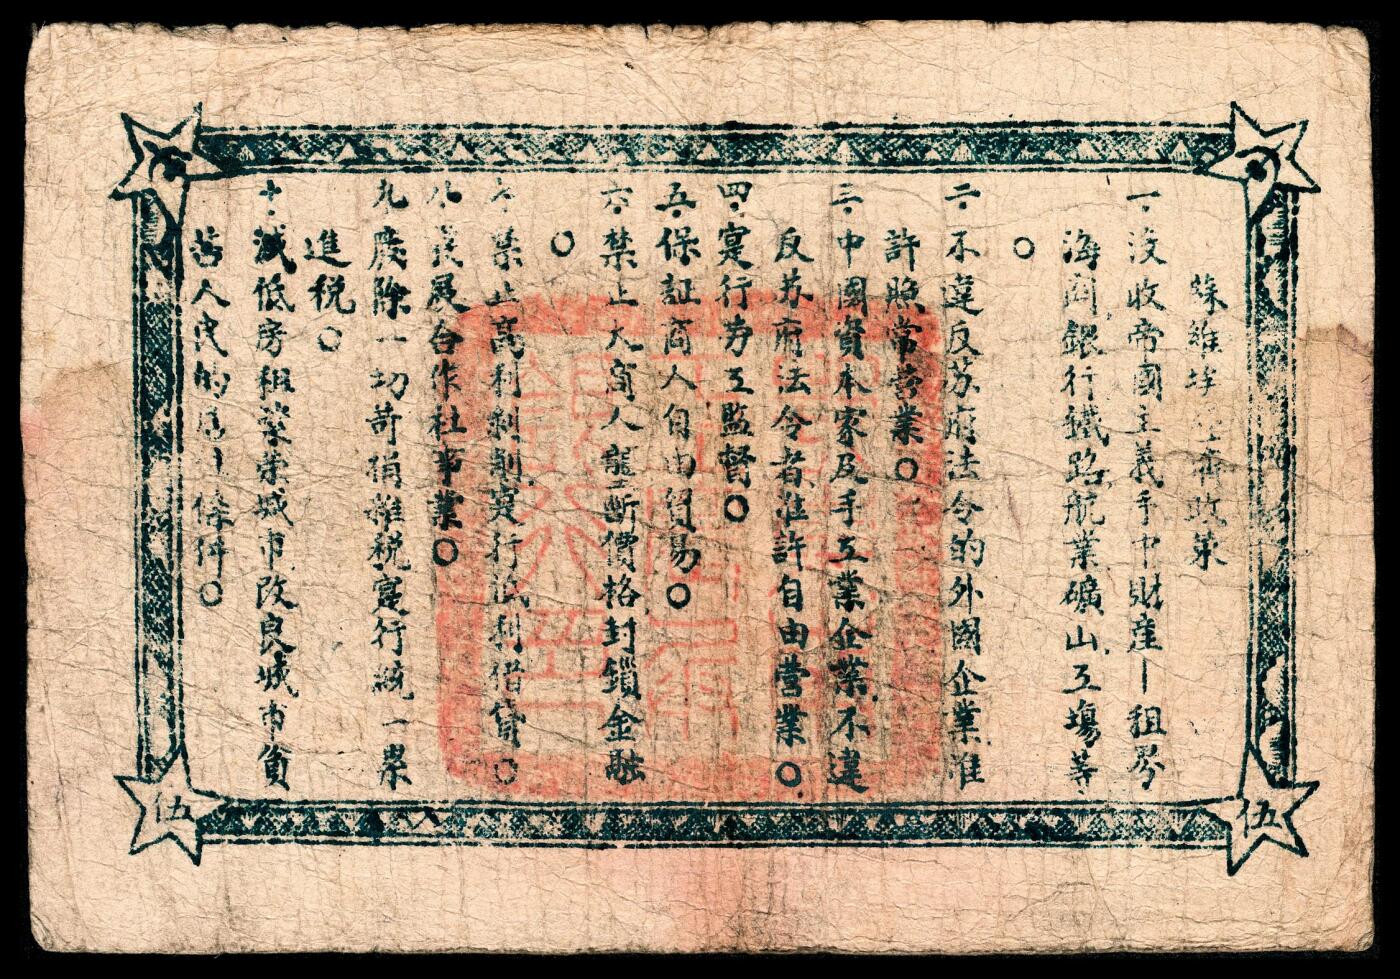 蘇維埃經濟政策
一.沒收帝國主義手中財產—租界
海関銀行鐵路航業礦山工塲等
○
二.不違反苏府法令的外國企業准
許照常营業○
三.中國資本家及手工業企業不違
反苏府法令者准許自由营業○
四.寔行劳工監督○
五.保証商人自由貿易○
六.禁止大商人龍斷價格封鎖金融
○
七.禁止高利剝削寔行低利借貸○
八.發展合作社事業○
九.廢除一切苛捐雜税寔行統一累
進税○
十.減低房租繁荣城市改良城市貧
苦人民的居住條件○
伍
伍